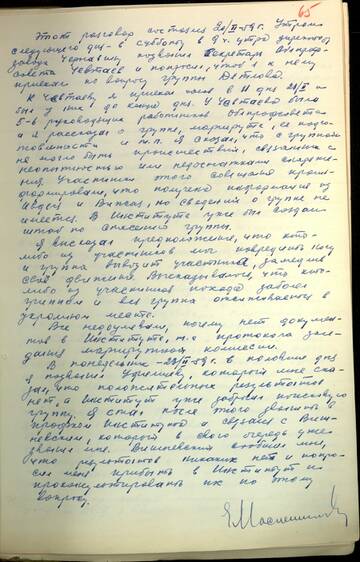 65
Этот разговор состоялся 20/II-59 г. Утром
следующего дня - в субботу в 9 ч. утра директору
завода Чернавину позвонил секретарь Облпроф-
совета Чевтаев и попросил, чтоб я к нему
приехал по вопросу группы Дятлова.
К Чевтаеву я приехал часов в 11 дня 21/II и
был у них до конца дня. У Чевтаева было
5-6 руководящих работников Облпрофсовета
и я рассказал о группе, маршруте, ее подго-
товленности и т.п. Я сказал, что с группой
не могло быть происшествий, связанных с
неопытностью или недостатками снаряже-
ния. Участники этого совещания проин-
формировали, что получено подтверждение из
и Вижая, но сведений о группе не
имеется. В Институте уже был создан
штаб по спасению группы.
Я высказал предположение, что кто-
либо из участников мог повредить ногу
и группа вывозит участника, замедлив
свое движение. Высказывалось, что кто-
либо из участников похода заболел
гриппом и вся группа отсиживается в
укромном месте.
Все недоумевали, почему нет докумен-
тов в Институте, т.е. протокола засе-
дания маршрутной комиссии.
В понедельник - 23/II-59 г. в половине дня
я позвонил, который мне ска-
зал, что положительных результатов
нет, и Институт уже забросил поисковую
группу. Я стал после этого звонить в
профком Института и связался с Виш-
невским, который в свою очередь уже
звонил мне. Вишневский сообщил мне,
что результатов никаких нет и попро-
сил меня прибыть в Институт и
проконсультировать их по этому
вопросу.
Е Масленников